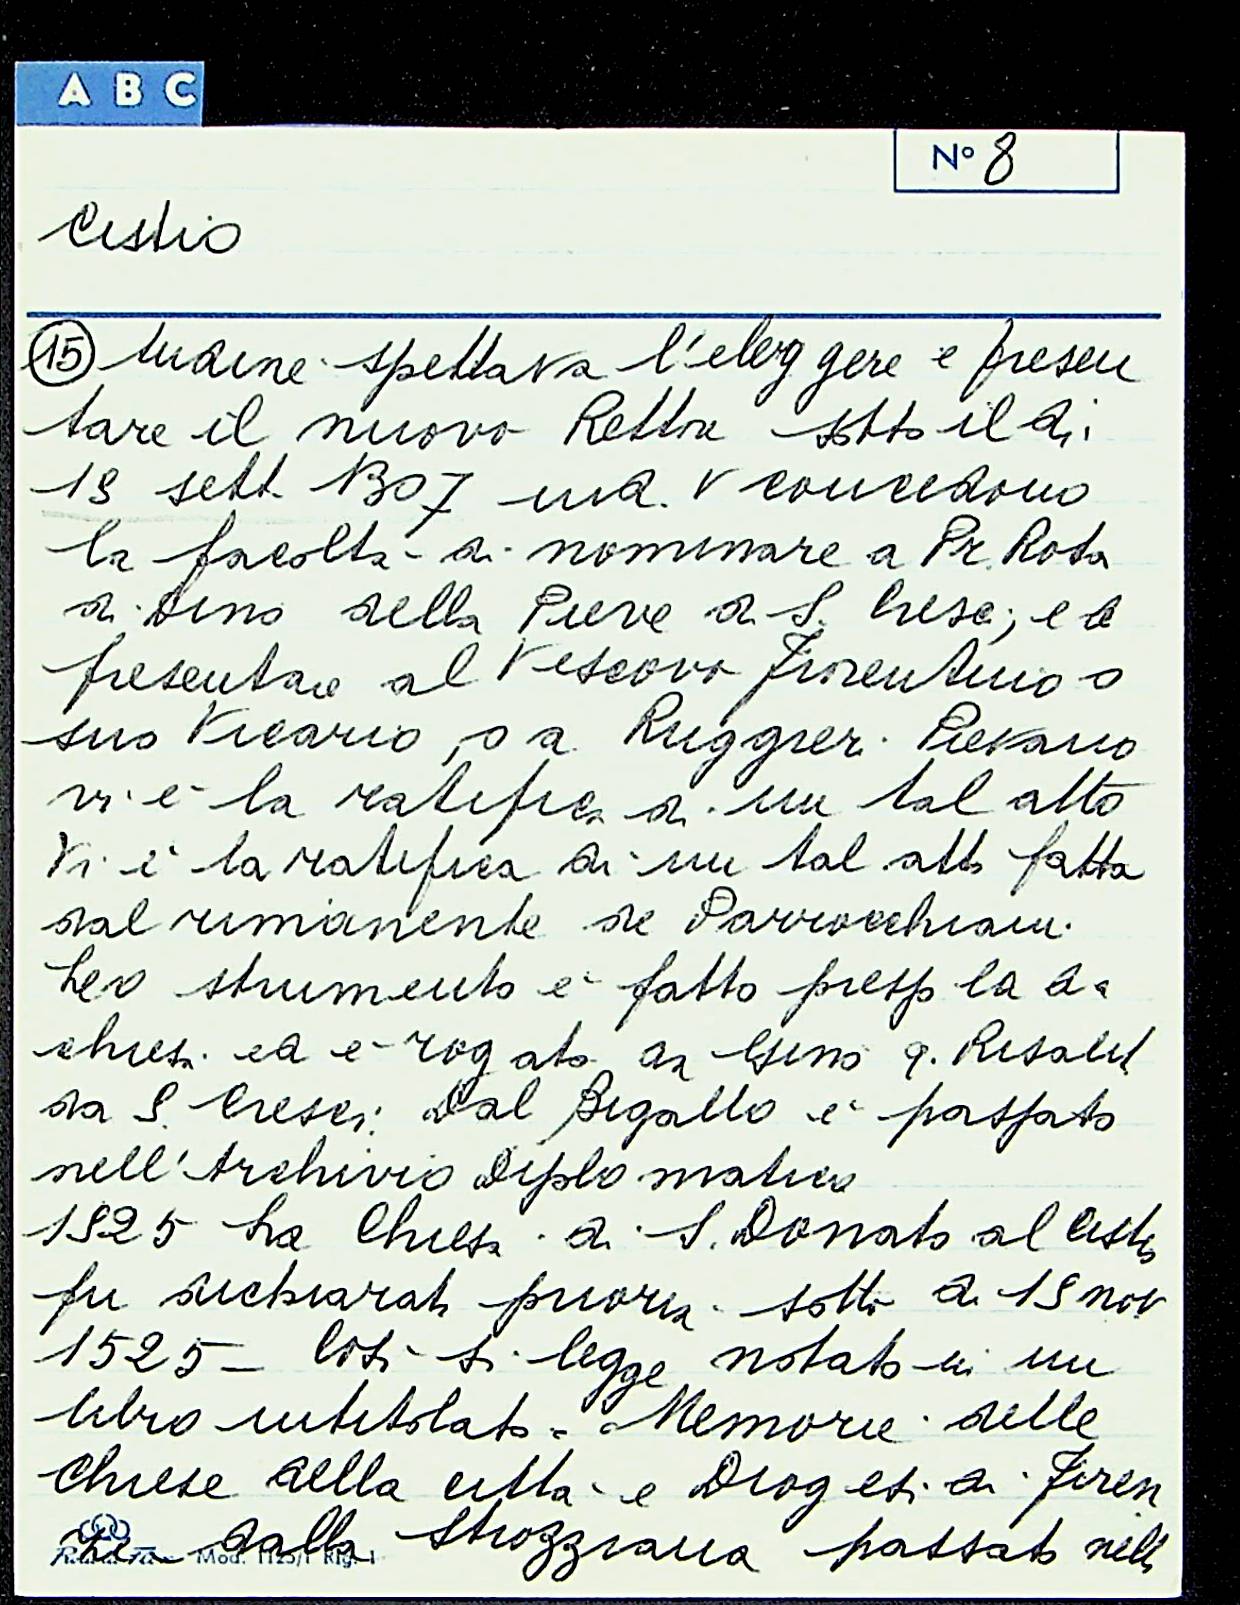 A B C
N° 8
Cistio
15 tudine spettava l'eleggere e presen
tare il nuovo Rettore sotto il dì
19 sett. 1307 ind. V concedono
la facoltà di nominare a Pr. Rota
di Dino della Pieve di S. Cresci, e a
presentare al Vescovo Fiorentino o
suo Vicario, o a Ruggieri Pievano
vi è la ratifica di un tal atto
Vi è la ratifica di un tal atto fatta
dal rimanente de Parrocchiani.
Lo strumento è fatto presso la d.a
chiesa ed è rogato da Gino q. Risalit
da S. Cresci. Dal Bigallo è passato
nell'Archivio Diplomatico
1525 La Chiesa di S. Donato al Cistio
fu dichiarata prioria sotto dì 19 nov
1525 - Così si legge notato in un
libro intitolato = Memorie delle
Chiese della città e Diogesi di Firen
dalla Strozziana passato nell
Mod. 1125/1 Rig. 1